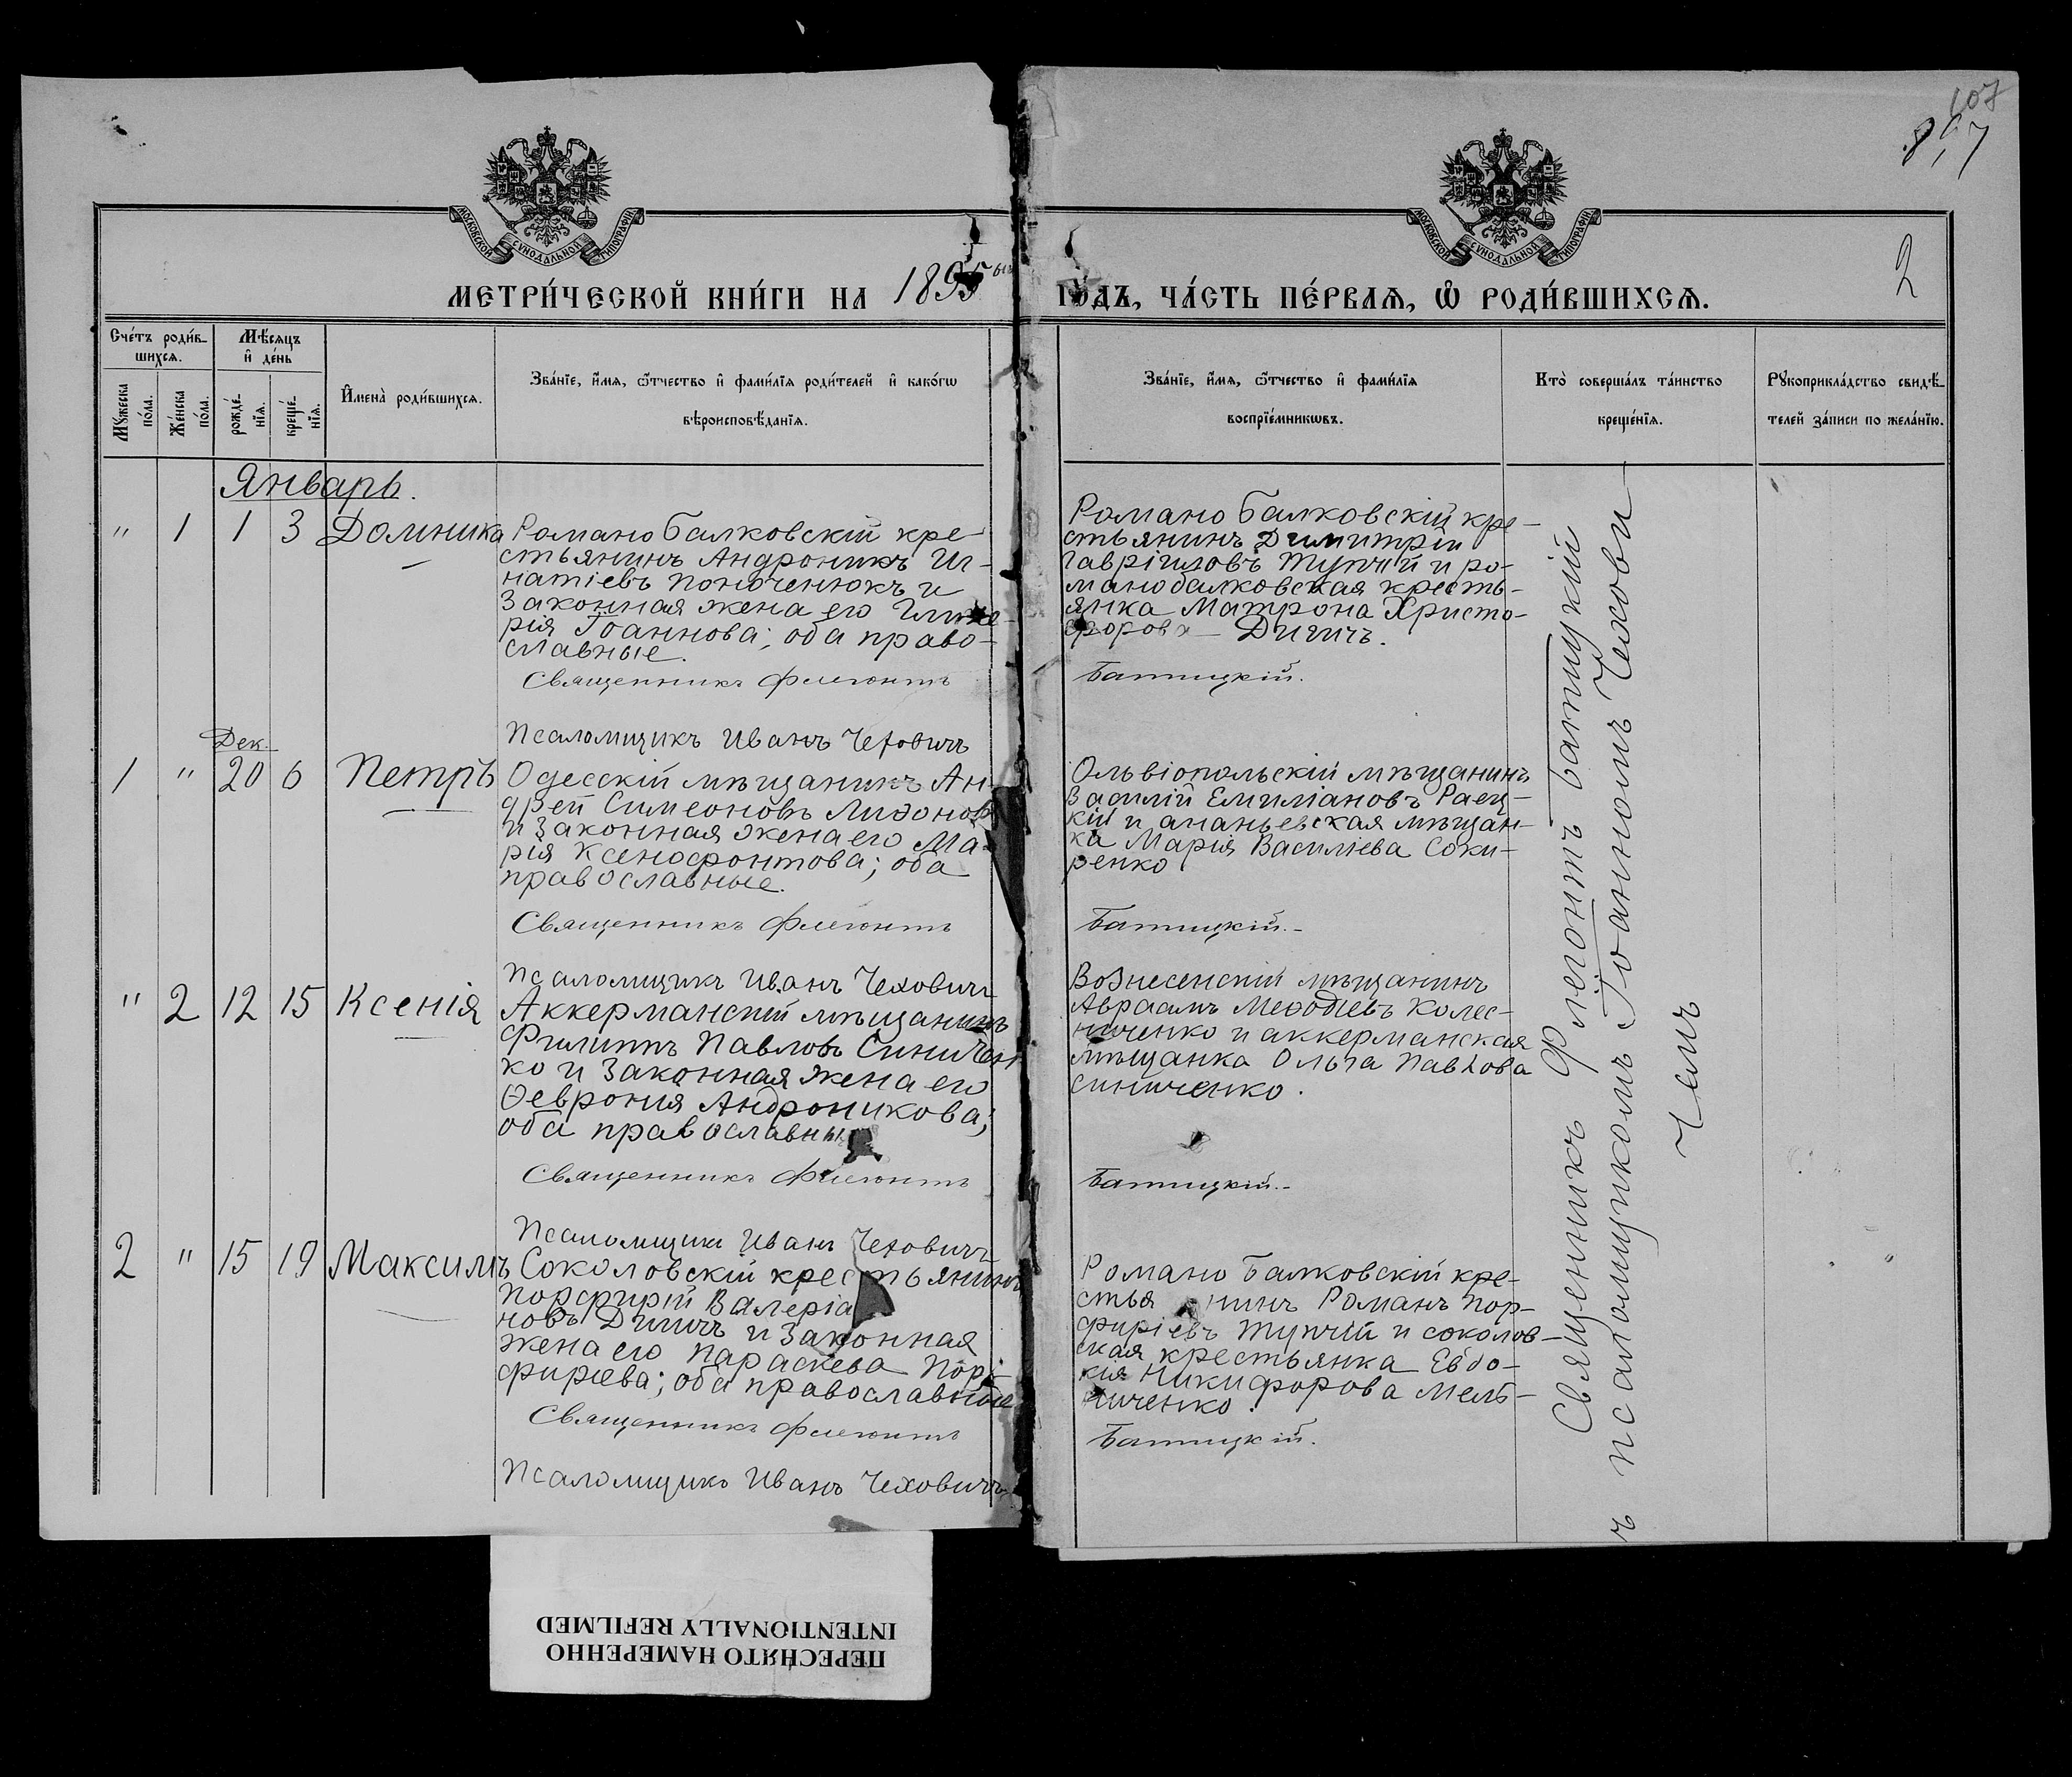 107
2
МОСКОВСКОЙ СѴНОДАЛЬНОЙ ТИПОГРАФІИ
МОСКОВСКОЙ СѴНОДАЛЬНОЙ ТИПОГРАФІИ
МЕТРИ́ЧЕСКОЙ КНИ́ГИ НА 1895 ГО́ДЪ, ЧА́СТЬ ПЕ́РВАЯ, Ѡ РОДИ́ВШИХСЯ.
Сче́тъ роди́в-
шихся.
Мꙋ́жеска по́ла.
Же́нска по́ла.
Мѣ́сяцъ
и҆ де́нь
рожде́-
нїя.
креще́-
нїя.
И҆мена̀ роди́вшихся.
Зва́нїе, и҆́мя, ѻ҆́тчество и҆ фами́лїя роди́телей и҆ како́гѡ
вѣроисповѣ́данїя.
Зва́нїе, и҆́мя, ѻ҆́тчество и҆ фами́лїя
воспрїе́мникѡвъ.
Кто̀ соверша́лъ та́инство
креще́нїя.
Рꙋкоприкла́дство свидѣ́-
телей за́писи по жела́нїю.
Январь.
" 1 1 3 Домника
Романо Балковскій кре
стьянинъ Андроникъ Иг-
натіевъ Поноченюкъ и
законная жена его Глике-
рія Іоаннова; оба право-
славные.
Священникъ Флегонтъ
Псаломщикъ Иванъ Чеховичъ
Романо Балковскій кре-
стьянинъ Димитрій
Гавріиловъ Тупчій и ро-
манобалковская кресть-
янка Матрона Христо-
форова Дигичъ.
Батицкій.
Дек.
1 " 20 6 Петръ
Одесскій мѣщанинъ Ан-
дрей Симеоновъ Лизоновъ
и законная жена его Ма-
рія Ксенофонтова; оба
православные.
Священникъ Флегонтъ
Псаломщикъ Иванъ Чеховичъ
Ольвіопольскій мѣщанинъ
Василій Емиліановъ Раец-
кій и ананьевская мѣщан-
ка Марія Василіева Соки-
ренко
Батицкій.-
" 2 12 15 Ксенія
Аккерманскій мѣщанинъ
Филиппъ Павловъ Синичен
ко и законная жена его
Ѳеврония Андроникова;
оба православны
Священникъ Флегонтъ
Псаломщикъ Иванъ Чеховичъ
Вознесенскій мѣщанинъ
Авраамъ Меѳодіевъ Колес-
ниченко и аккерманская
мѣщанка Ольга Павлова
Синиченко.
Батицкій.-
2 " 15 19 Максимъ
Соколовскій крестьянинъ
Порфирій Валеріа
новъ Дигичъ и законная
жена его Параскева Пор-
фиріева; оба православные
Священникъ Флегонтъ
Псаломщикъ Иванъ Чеховичъ
Романо Балковскій кре-
стьянинъ Романъ Пор-
фиріевъ Тупчій и соколов-
ская крестьянка Евдо-
кія Никифорова Мель-
ниченко.
Батицкій.
Священникъ Флегонтъ Батицкій
съ псаломщикомъ Іоанномъ Чехови
чемъ
ПЕРЕСНЯТО НАМЕРЕННО
INTENTIONALLY REFILMED